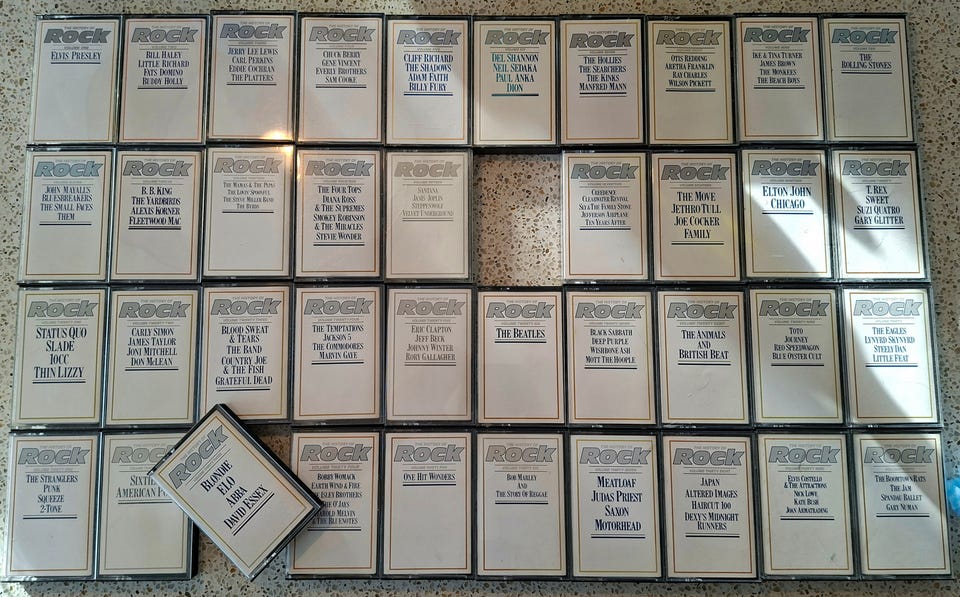 THE HISTORY OF
Rock
VOLUME ONE
ELVIS PRESLEY
Rock
BILL HALEY
LITTLE RICHARD
FATS DOMINO
BUDDY HOLLY
Rock
JERRY LEE LEWIS
CARL PERKINS
EDDIE COCHRAN
THE PLATTERS
Rock
CHUCK BERRY
GENE VINCENT
EVERLY BROTHERS
SAM COOKE
THE HISTORY OF
Rock
VOLUME FIVE
CLIFF RICHARD
THE SHADOWS
ADAM FAITH
BILLY FURY
THE HISTORY OF
Rock
VOLUME SIX
DEL SHANNON
NEIL SEDAKA
PAUL ANKA
DION
Rock
THE HOLLIES
THE SEARCHERS
THE KINKS
MANFRED MANN
Rock
OTIS REDDING
ARETHA FRANKLIN
RAY CHARLES
WILSON PICKETT
Rock
VOLUME NINE
IKE & TINA TURNER
JAMES BROWN
THE MONKEES
THE BEACH BOYS
Rock
VOLUME TEN
THE
ROLLING STONES
THE HISTORY OF
Rock
JOHN MAYALL'S
BLUESBREAKERS
THE SMALL FACES
THEM
THE HISTORY OF
Rock
B. B. KING
THE YARDBIRDS
ALEXIS KORNER
FLEETWOOD MAC
THE HISTORY OF
Rock
THE MAMAS & THE PAPAS
THE LOVIN' SPOONFUL
THE STEVE MILLER BAND
THE BYRDS
THE HISTORY OF
Rock
VOLUME FOURTEEN
THE FOUR TOPS
DIANA ROSS
& THE SUPREMES
SMOKEY ROBINSON
& THE MIRACLES
STEVIE WONDER
THE HISTORY OF
Rock
VOLUME FIFTEEN
SANTANA
JANIS JOPLIN
STEPPENWOLF
VELVET UNDERGROUND
THE HISTORY OF
Rock
VOLUME SEVENTEEN
CREEDENCE
CLEARWATER REVIVAL
SLY & THE FAMILY STONE
JEFFERSON AIRPLANE
TEN YEARS AFTER
THE HISTORY OF
Rock
VOLUME EIGHTEEN
THE MOVE
JETHRO TULL
JOE COCKER
FAMILY
THE HISTORY OF
Rock
VOLUME NINETEEN
ELTON JOHN
CHICAGO
THE HISTORY OF
Rock
VOLUME TWENTY
T. REX
SWEET
SUZI QUATRO
GARY GLITTER
THE HISTORY OF
Rock
STATUS QUO
SLADE
10CC
THIN LIZZY
THE HISTORY OF
Rock
VOLUME TWENTY TWO
CARLY SIMON
JAMES TAYLOR
JONI MITCHELL
DON McLEAN
THE HISTORY OF
Rock
VOLUME TWENTY THREE
BLOOD SWEAT
& TEARS
THE BAND
COUNTRY JOE
& THE FISH
GRATEFUL DEAD
THE HISTORY OF
Rock
VOLUME TWENTY FOUR
THE TEMPTATIONS
JACKSON 5
THE COMMODORES
MARVIN GAYE
THE HISTORY OF
Rock
VOLUME TWENTY FIVE
ERIC CLAPTON
JEFF BECK
JOHNNY WINTER
RORY GALLAGHER
THE HISTORY OF
Rock
VOLUME TWENTY SIX
THE BEATLES
THE HISTORY OF
Rock
VOLUME TWENTY SEVEN
BLACK SABBATH
DEEP PURPLE
WISHBONE ASH
MOTT THE HOOPLE
THE HISTORY OF
Rock
VOLUME TWENTY EIGHT
THE ANIMALS
AND
BRITISH BEAT
THE HISTORY OF
Rock
VOLUME TWENTY NINE
TOTO
JOURNEY
REO SPEEDWAGON
BLUE OYSTER CULT
THE HISTORY OF
Rock
VOLUME THIRTY
THE EAGLES
LYNYRD SKYNYRD
STEELY DAN
LITTLE FEAT
THE HISTORY OF
Rock
THE STRANGLERS
PUNK
SQUEEZE
2-TONE
THE HISTORY OF
AMERICAN
Rock
BLONDIE
ELO
ABBA
DAVID ESSEX
THE HISTORY OF
Rock
VOLUME THIRTY FOUR
BOBBY WOMACK
EARTH WIND & FIRE
ISLEY BROTHERS
O'JAYS
HAROLD MELVIN
& THE BLUENOTES
THE HISTORY OF
Rock
VOLUME THIRTY FIVE
ONE HIT WONDERS
THE HISTORY OF
Rock
VOLUME THIRTY SIX
BOB MARLEY
AND
THE STORY OF REGGAE
THE HISTORY OF
Rock
VOLUME THIRTY SEVEN
MEATLOAF
JUDAS PRIEST
SAXON
MOTORHEAD
THE HISTORY OF
Rock
VOLUME THIRTY EIGHT
JAPAN
ALTERED IMAGES
HAIRCUT 100
DEXY'S MIDNIGHT
RUNNERS
THE HISTORY OF
Rock
VOLUME THIRTY NINE
ELVIS COSTELLO
& THE ATTRACTIONS
NICK LOWE
KATE BUSH
JOAN ARMATRADING
THE HISTORY OF
Rock
THE BOOMTOWN RATS
THE JAM
SPANDAU BALLET
GARY NUMAN